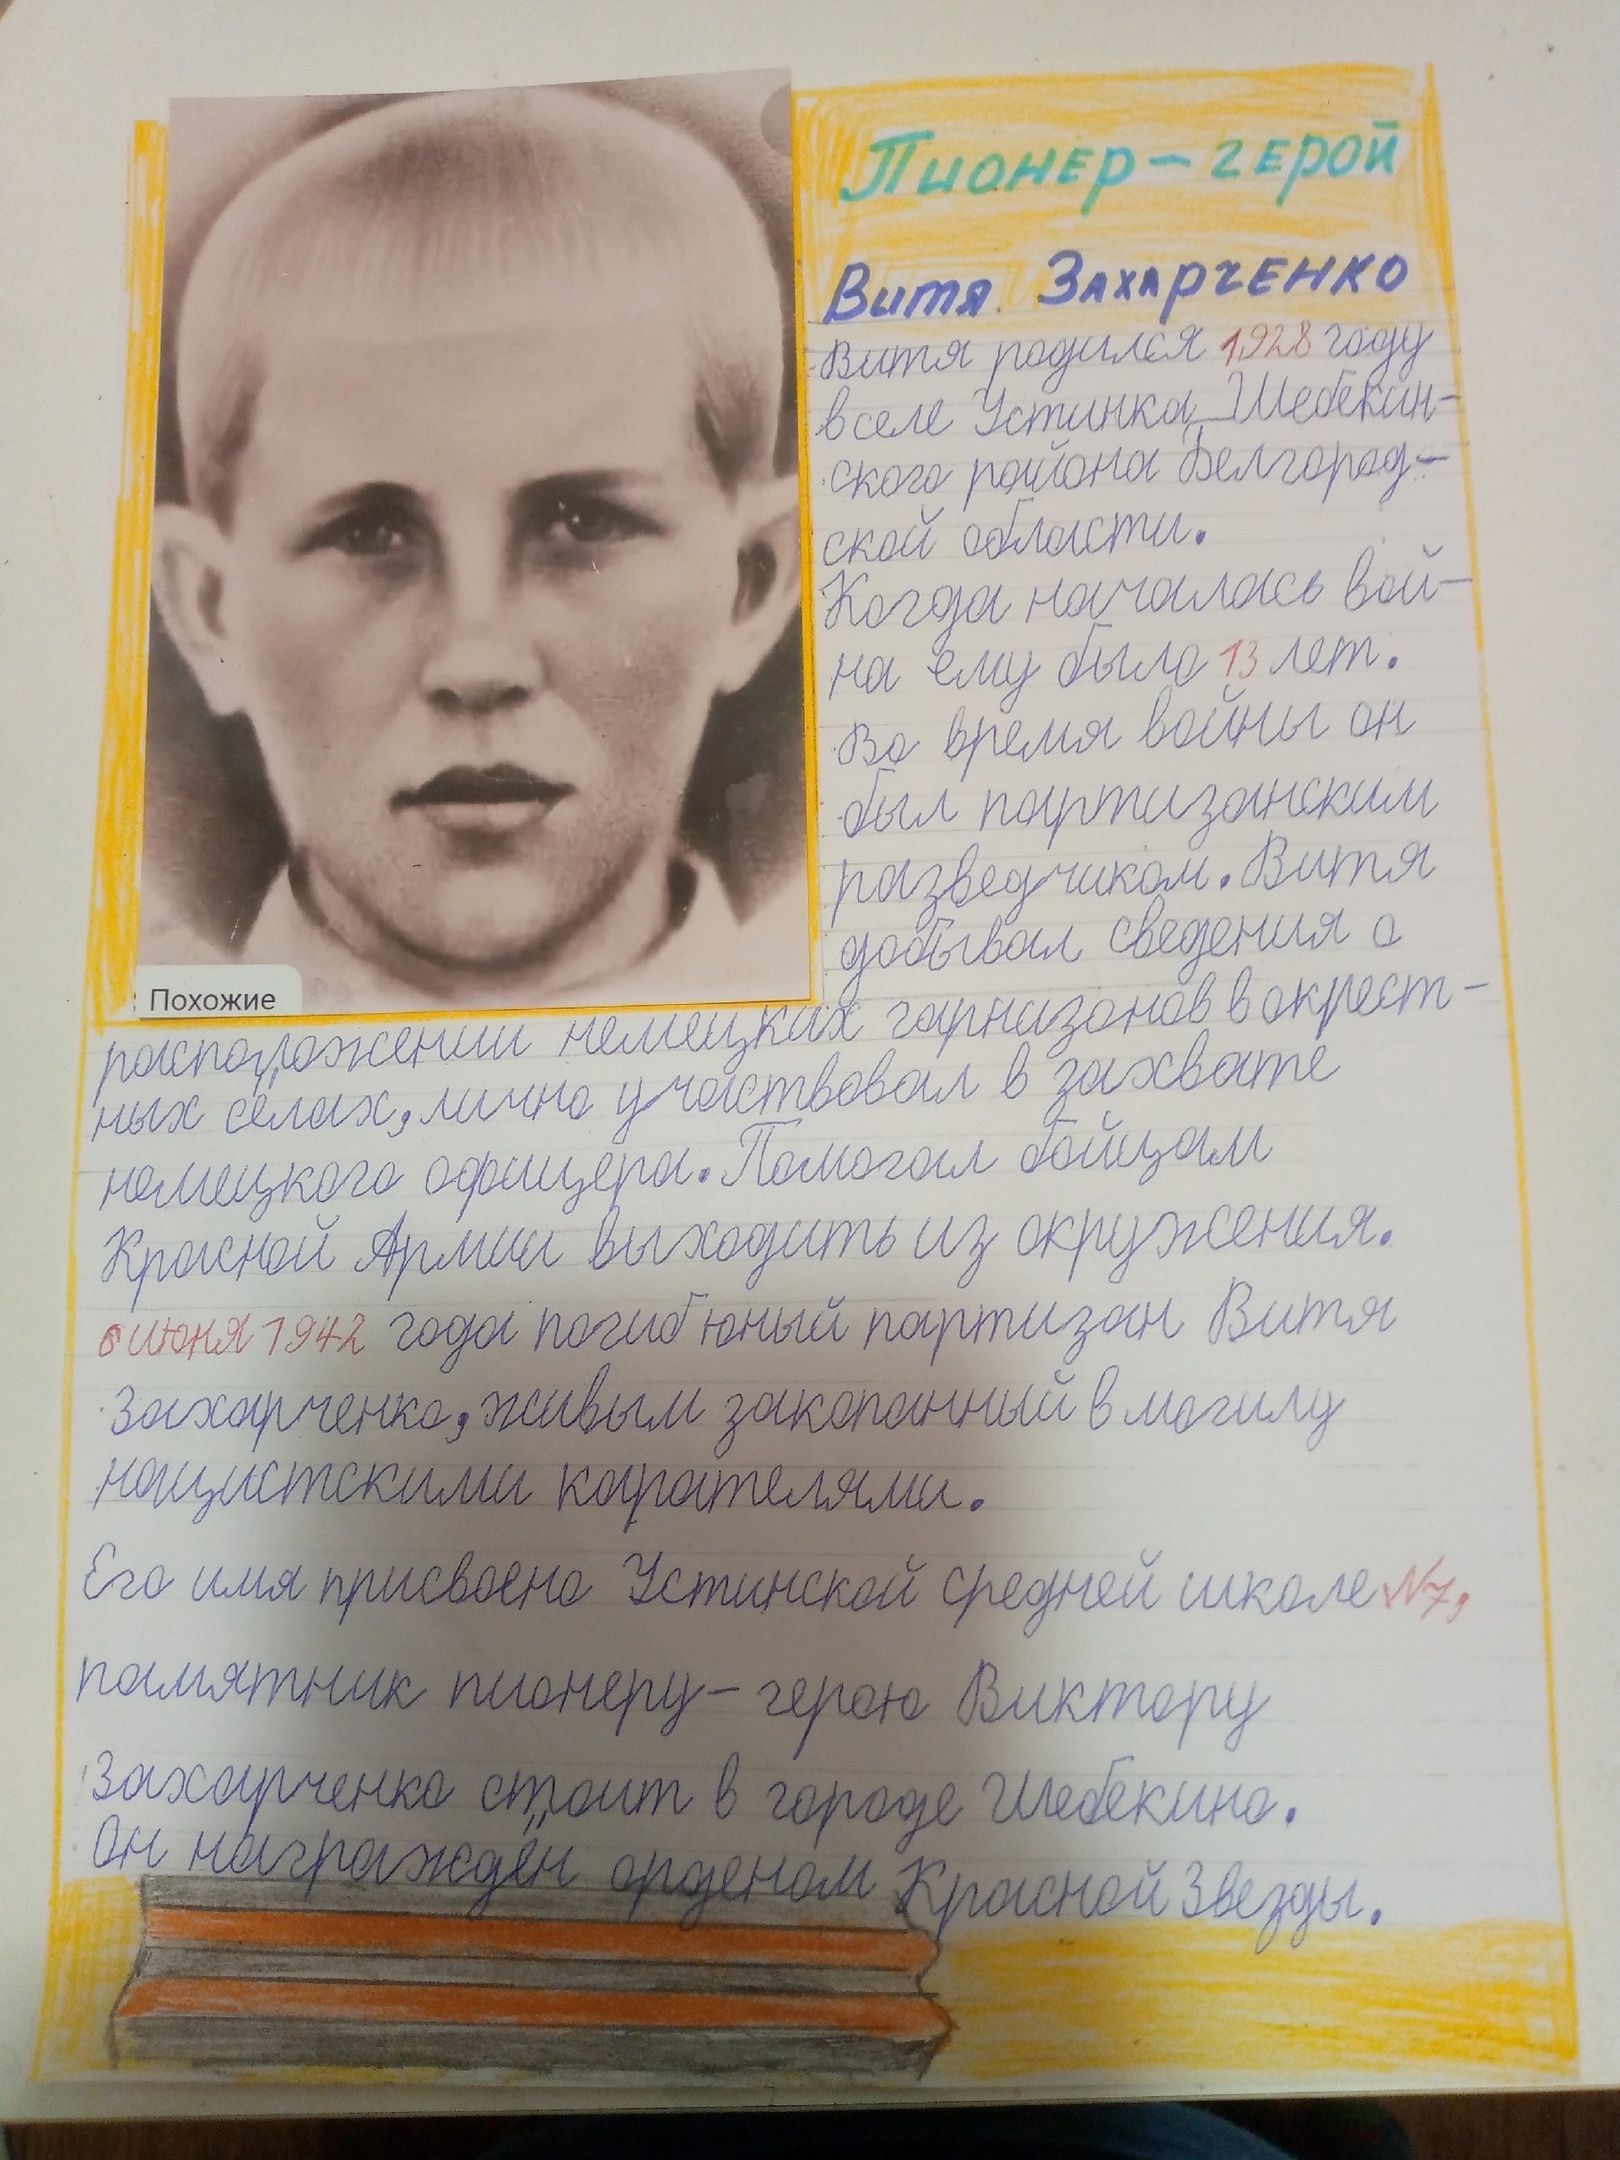 Пионер-герой
Витя Захарченко
Витя родился 1928 году
в селе Устинка Шебекин-
ского района Белгород-
ской области.
Когда началась вой-
на ему было 13 лет.
Во время войны он
был партизанским
разведчиком. Витя
добывал сведения о
Похожие
расположении немецких гарнизонов в окрест-
ных сёлах, лично участвовал в захвате
немецкого офицера. Помогал бойцам
Красной Армии выходить из окружения.
6 июня 1942 года погиб юный партизан Витя
Захарченко, живым закопанный в могилу
нацистскими карателями.
Его имя присвоено Устинской средней школе №7,
памятник пионеру-герою Виктору
Захарченко стоит в городе Шебекино.
Он награждён орденом Красной Звезды.